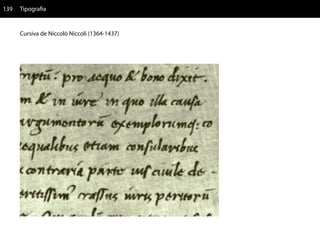 139 Tipografia
Cursiva de Niccolò Niccoli (1364-1437)
riptū. pro aequo & bono dixit.
m & in iure in quo illa causa
argumentorū exemplorumq; co
aequalibus etiam consularibus
contraria parte ius ciuile de-
eritissim' crassus iuris peritorū